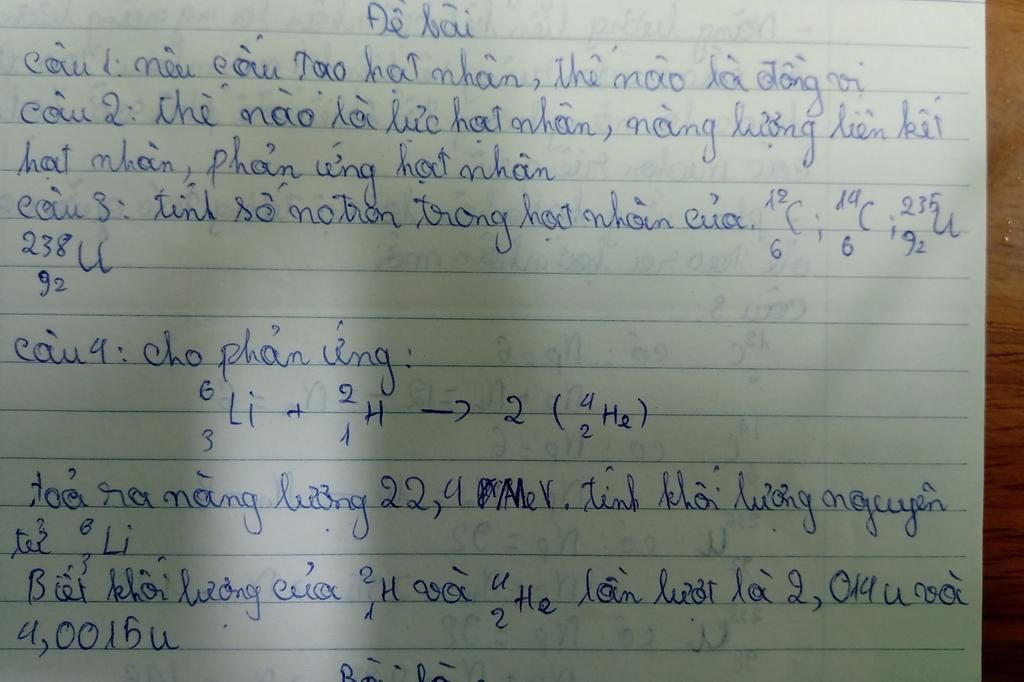 Đề bài
Câu 1: nêu cấu tạo hạt nhân, thế nào là đồng vị
Câu 2: thế nào là lực hạt nhân, năng lượng liên kết
hạt nhân, phản ứng hạt nhân
Câu 3: tính số nơtron trong hạt nhân của. ¹²₆C; ¹⁴₆C; ²³⁵₉₂U
²³⁸₉₂U
Câu 4: cho phản ứng:
⁶₃Li + ²₁H → 2 (⁴₂He)
toả ra năng lượng 22,4 MeV. tính khối lượng nguyên
tử ⁶₃Li
Biết khối lượng của ²₁H và ⁴₂He lần lượt là 2,014u và
4,0015u